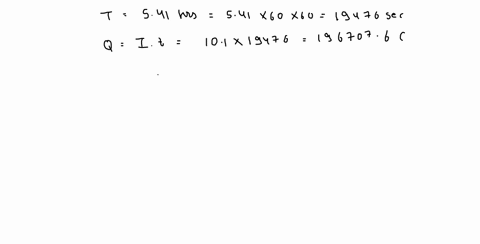 T = 5.41 hrs = 5.41 x 60 x 60 = 19476 sec
Q = I.t = 10.1 x 19476 = 196707.6 C